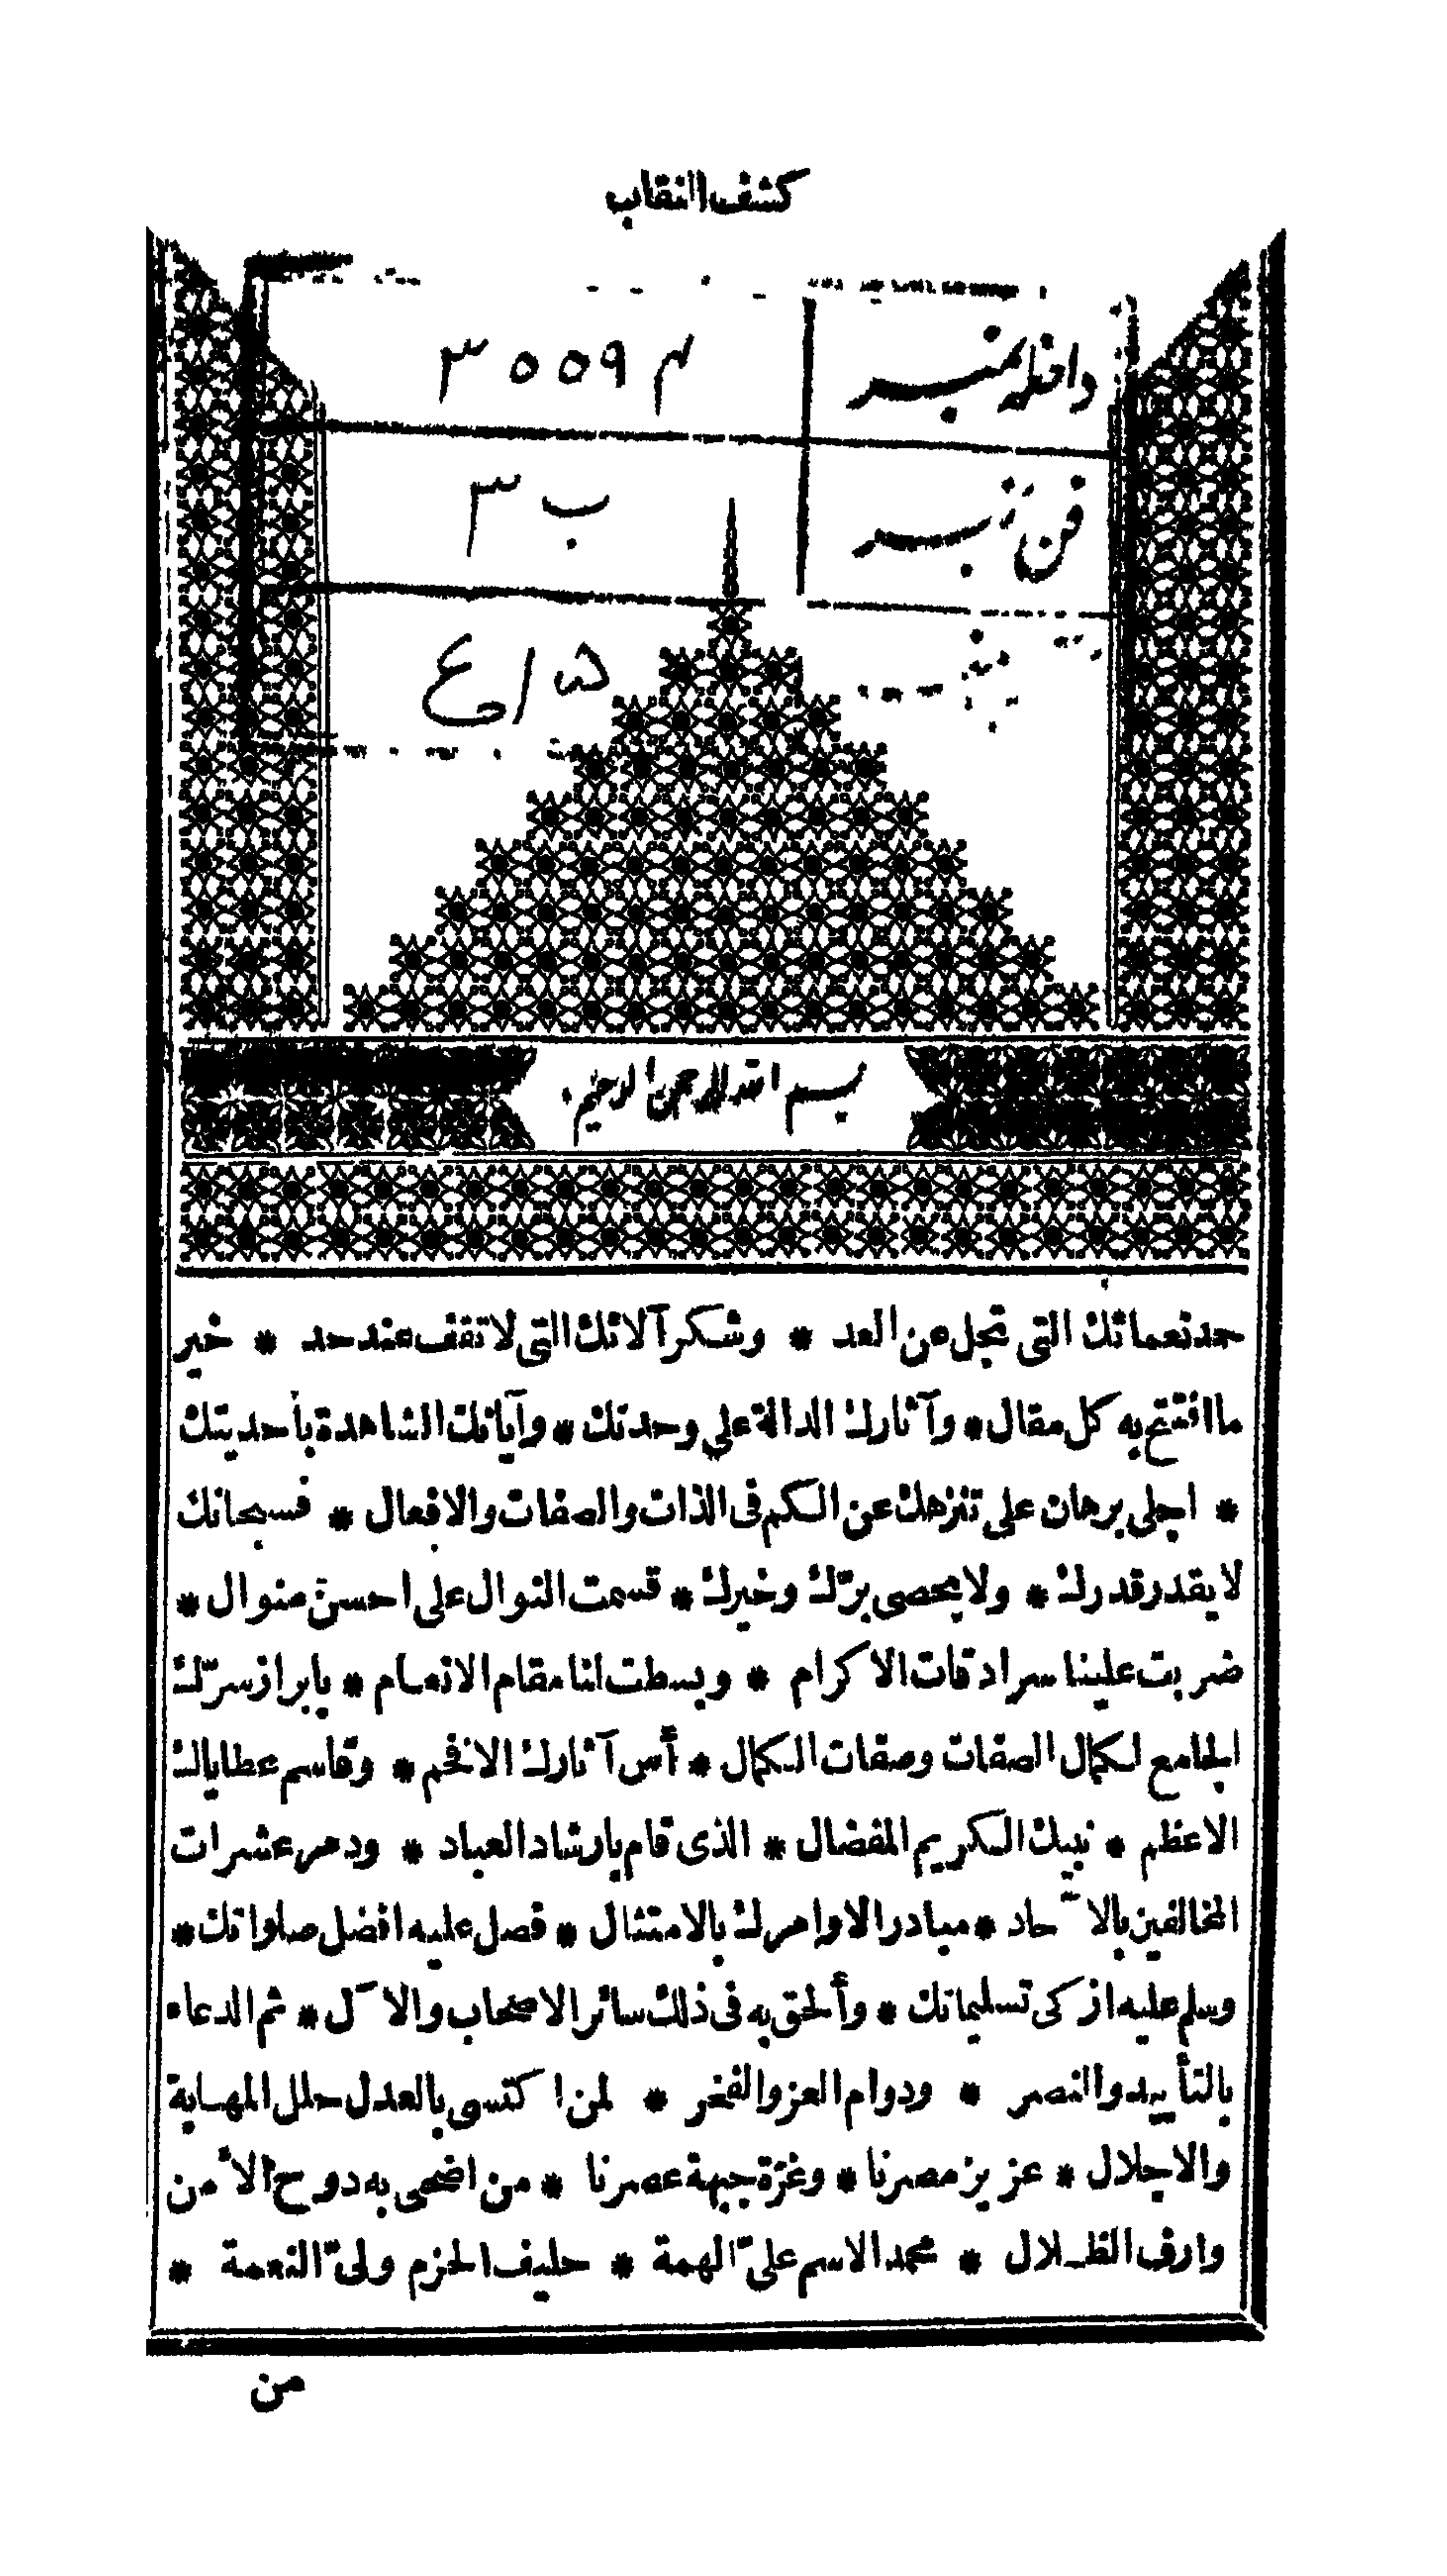 كشف النقاب
داخله نمبر
فن نمبر
ب ٣
بسم الله الرحمن الرحيم
حمد نعمائك التى تجل عن العد * وشكر آلائك التى لا تقف عند حد * خير
ما افتتح به كل مقال * وآثارك الدالة على وحدتك * وآياتك الشاهدة بأحديتك
* اجلى برهان على تنزهك عن الكم فى الذات والصفات والافعال * فسبحانك
لا يقدر قدرك * ولا يحصى برّك وخيرك * قسمت النوال على احسن منوال *
ضربت علينا سرادقات الاكرام * وبسطت لنا مقام الانعام * بابراز سرّك
الجامع لكمال الصفات وصفات الكمال * أس آثارك الافخم * وقاسم عطاياك
الاعظم * نبيك الكريم المفضال * الذى قام بارشاد العباد * ودمر عشرات
المخالفين بالآحاد * مبادرا لاوامرك بالامتثال * فصل عليه افضل صلواتك *
وسلم عليه ازكى تسليماتك * وألحق به فى ذلك سائر الاصحاب والآل * ثم الدعاء
بالتأييد والنصر * ودوام العز والفخر * لمن اكتسى بالعدل حلل المهابة
والاجلال * عزيز مصرنا * وغرّة جبهة عصرنا * من اضحى به دوح الأمن
وارف الظلال * محمد الاسم علىّ الهمة * حليف الحزم ولىّ النعمة *
من